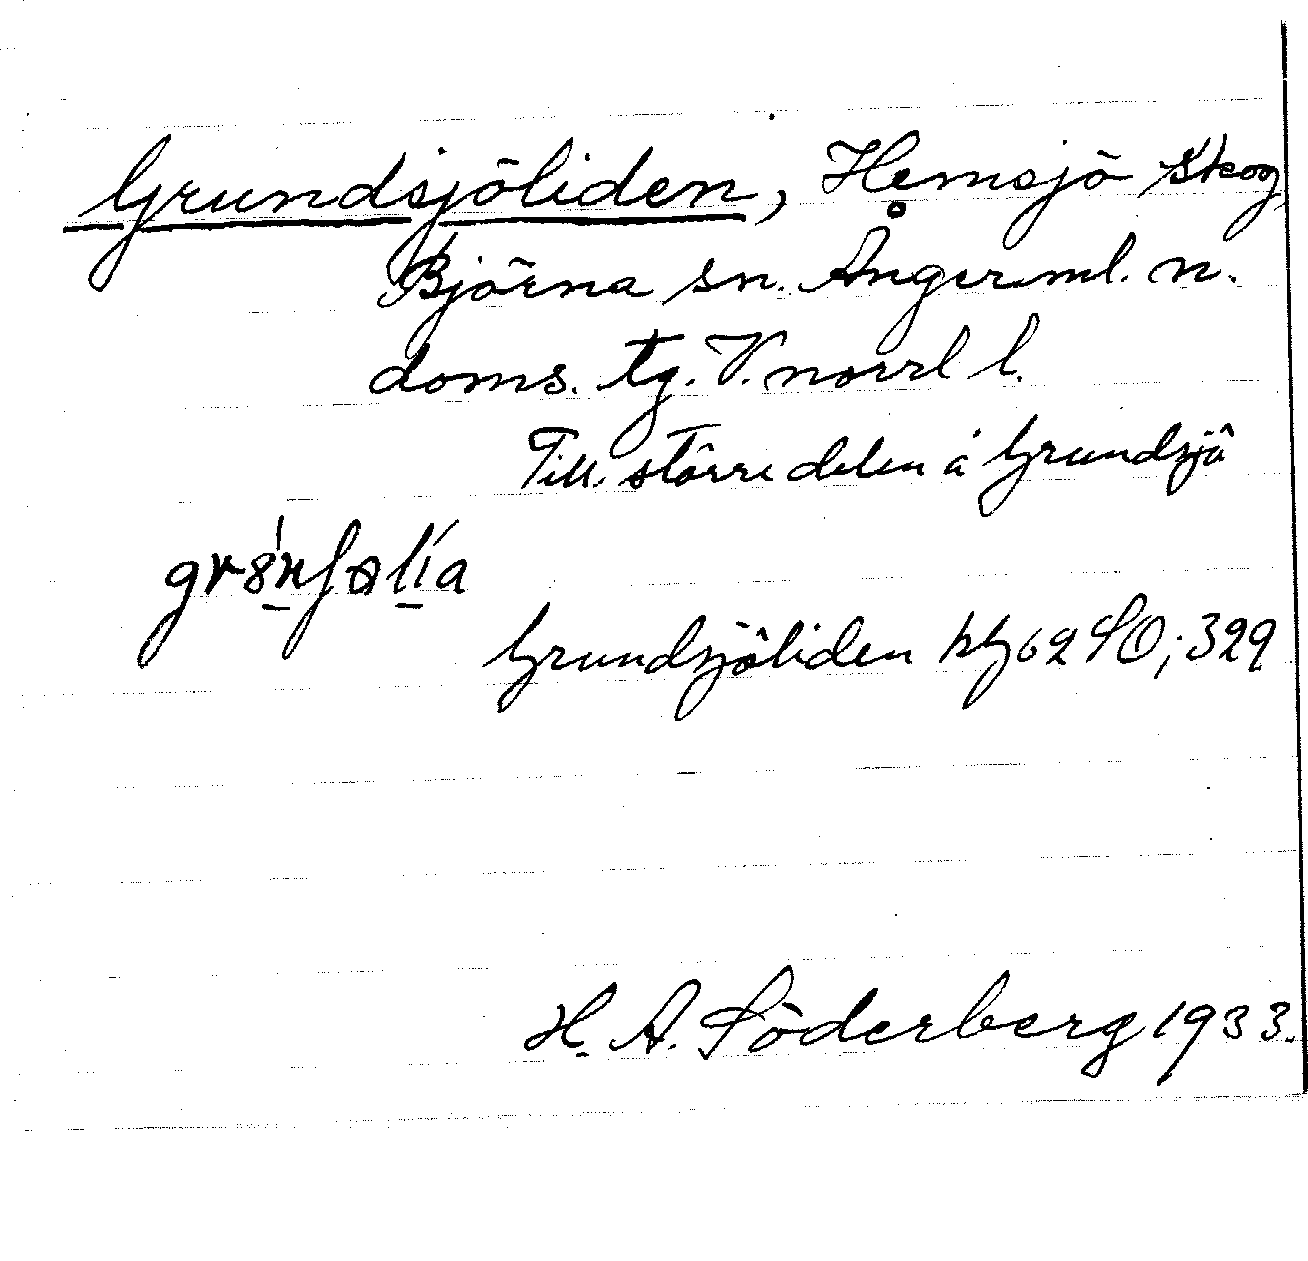 Grundsjöliden, Hemsjö skog
Björna sn. Ångerml. n.
doms. tg. V. norrl l.
Till större delen å Grundsjö
Grundsjöliden kb 62 SO; 329
H. A. Söderberg 1933.